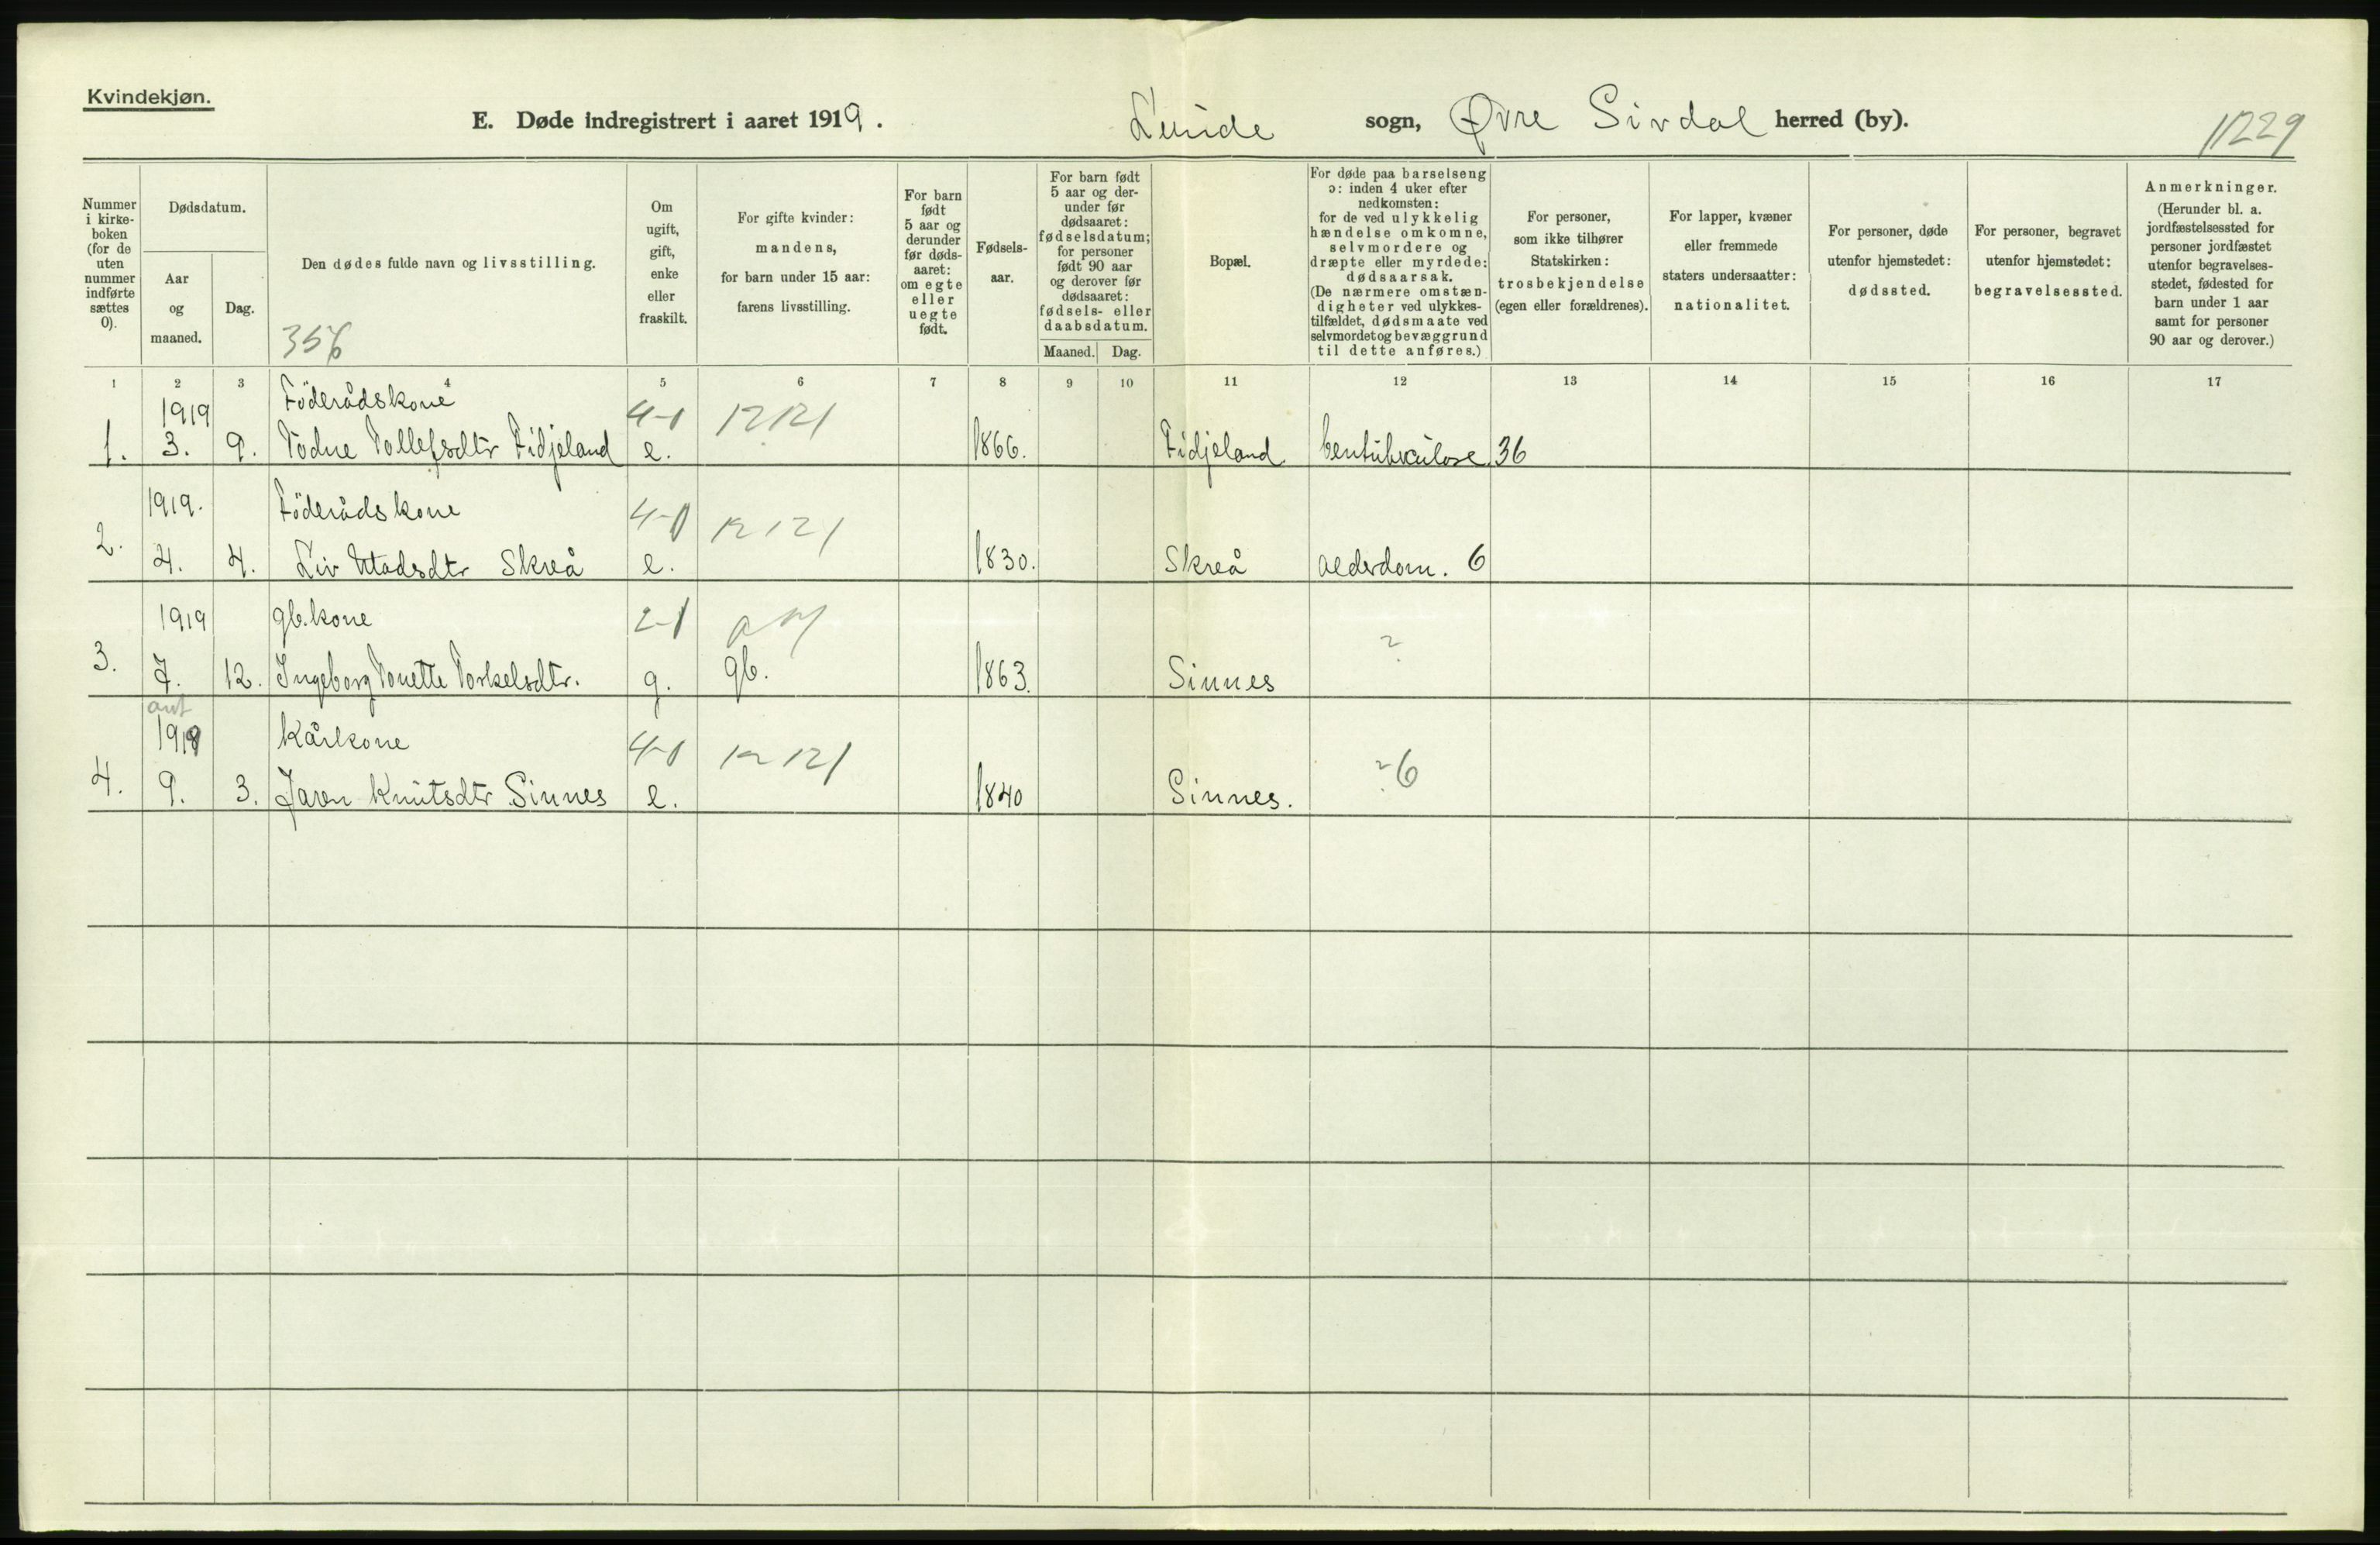 Kvindekjøn.
E. Døde indregistrert i aaret 1919. Lunde sogn, Øvre Sirdal herred (by). 11229
Nummer i kirke-boken (for de uten nummer indførte sættes 0).
Dødsdatum.
Aar og maaned.
Dag.
Den dødes fulde navn og livsstilling.
356
Om ugift, gift, enke eller fraskilt.
For gifte kvinder: mandens, for barn under 15 aar: farens livsstilling.
For barn født 5 aar og derunder før døds-aaret: om egte eller uegte født.
Fødsels-aar.
For barn født 5 aar og der-under før dødsaaret: fødselsdatum; for personer født 90 aar og derover før dødsaaret: fødsels- eller daabsdatum.
Maaned. Dag.
Bopæl.
For døde paa barselseng ɔ: inden 4 uker efter nedkomsten: for de ved ulykkelig hændelse omkomne, selvmordere og dræpte eller myrdede: dødsaarsak. (De nærmere omstæn-digheter ved ulykkes-tilfældet, dødsmaate ved selvmordet og bevæggrund til dette anføres.)
For personer, som ikke tilhører Statskirken: trosbekjendelse (egen eller forældrenes).
For lapper, kvæner eller fremmede staters undersaatter: nationalitet.
For personer, døde utenfor hjemstedet: dødssted.
For personer, begravet utenfor hjemstedet: begravelsessted.
Anmerkninger. (Herunder bl. a. jordfæstelsessted for personer jordfæstet utenfor begravelses-stedet, fødested for barn under 1 aar samt for personer 90 aar og derover.)
1 2 3 4 5 6 7 8 9 10 11 12 13 14 15 16 17
1919 Föderådskone 4-1 12121
1. 3. 9. Todne Tollefsdtr Fidjeland e. 1866. Fidjeland bentuberkulose 36
1919. Föderådskone 4-1 12121
2. 4. 4. Liv Madsdtr Skreå e. 1830. Skreå alderdom. 6
1919 gb.kone 2-1
3. 7. 12. Ingeborg Tonette Torkelsdtr. g. gb. 1863. Sinnes ?
ant
1919 Kårkone 4-1 12121
4. 9. 3. Jaren Knutsdtr Sinnes e. 1840 Sinnes. ? 6